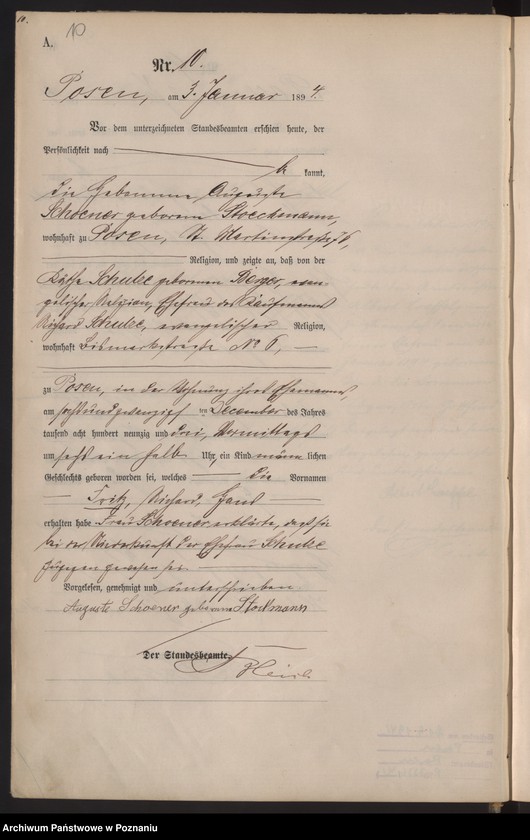 10.
A. 10
Nr. 10.
Posen, am 3. Januar 1894.
Vor dem unterzeichneten Standesbeamten erschien heute, der
Persönlichkeit nach
be kannt,
die Hebamme Auguste
Schoener geborene Stoeckmann,
wohnhaft zu Posen, St. Martinstraße 76,
Religion, und zeigte an, daß von der
Käthe Schulze geborenen Berger, evan-
gelischer Religion, Ehefrau des Kaufmanns
Richard Schulze, evangelischer Religion,
wohnhaft Bismarckstraße No 6,
zu Posen, in der Wohnung ihres Ehemannes,
am sechsundzwanzigsten December des Jahres
tausend acht hundert neunzig und drei, Vormittags
um sechs ein halb Uhr, ein Kind männlichen
Geschlechts geboren worden sei, welches die Vornamen
Fritz, Richard, Hans
erhalten habe. Frau Schoener erklärte, daß sie
bei der Niederkunft der Ehefrau Schulze
zugegen gewesen sei.
Vorgelesen, genehmigt und unterschrieben
Auguste Schoener geborene Stöckmann
Der Standesbeamte.
Archiwum Państwowe w Poznaniu